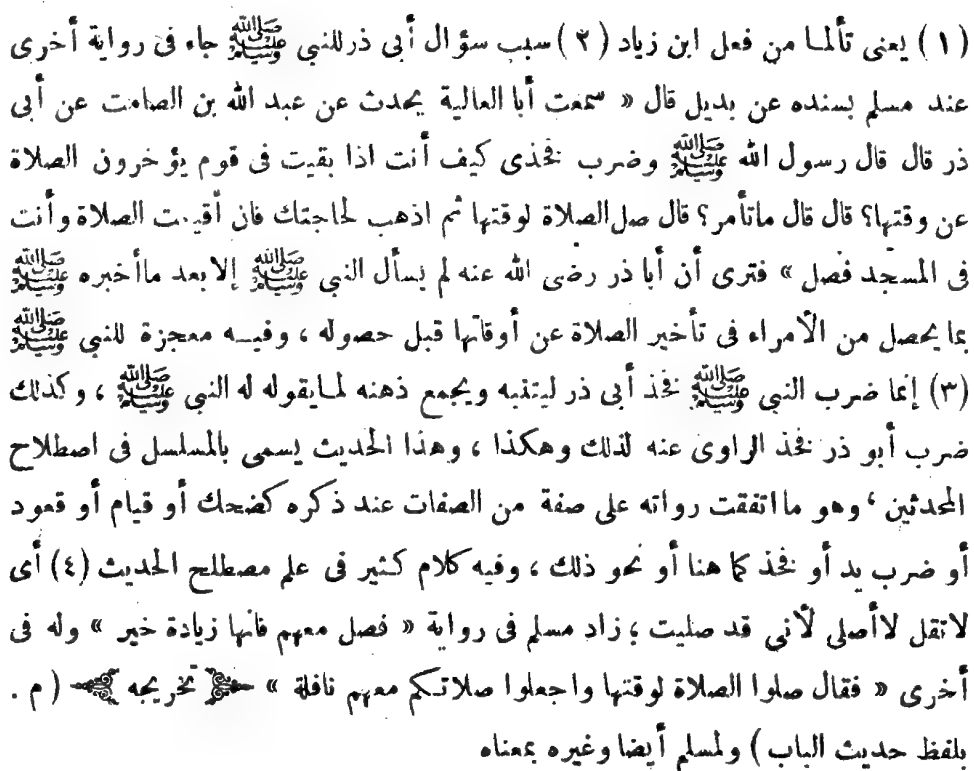 (١) يعنى تألما من فعل ابن زياد (٢) سبب سؤال أبى ذر للنبى ﷺ جاء فى رواية أخرى
عند مسلم بسنده عن بديل قال « سمعت أبا العالية يحدث عن عبد الله بن الصامت عن أبى
ذر قال قال رسول الله ﷺ وضرب فخذى كيف أنت اذا بقيت فى قوم يؤخرون الصلاة
عن وقتها؟ قال قال ماتأمر؟ قال صل الصلاة لوقتها ثم اذهب لحاجتك فان أقيمت الصلاة وأنت
فى المسجد فصل » فترى أن أبا ذر رضى الله عنه لم يسأل النبى ﷺ إلا بعد ماأخبره ﷺ
بما يحصل من الأمراء فى تأخير الصلاة عن أوقاتها قبل حصوله ، وفيه معجزة للنبى ﷺ
(٣) إنما ضرب النبى ﷺ فخذ أبى ذر ليتنبه ويجمع ذهنه لما يقوله له النبى ﷺ ، وكذلك
ضرب أبو ذر فخذ الراوى عنه لذلك وهكذا ، وهذا الحديث يسمى بالمسلسل فى اصطلاح
المحدثين ، وهو مااتفقت رواته على صفة من الصفات عند ذكره كضحك أو قيام أو قعود
أو ضرب يد أو فخذ كما هنا أو نحو ذلك ، وفيه كلام كثير فى علم مصطلح الحديث (٤) أى
لاتقل لاأصلى لأنى قد صليت ؛ زاد مسلم فى رواية « فصل معهم فانها زيادة خير » وله فى
أخرى « فقال صلوا الصلاة لوقتها واجعلوا صلاتكم معهم نافلة » تخريجه (م .
بلفظ حديث الباب) ولمسلم أيضا وغيره بمعناه